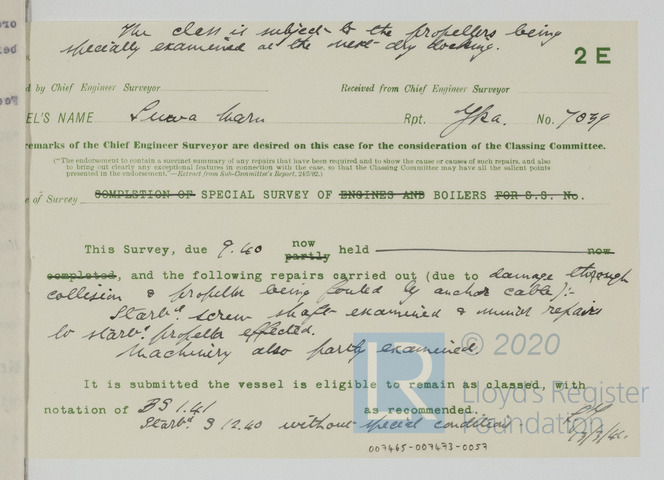 The class is subject to the propellers being
specially examined at the next dry docking.
2 E
d by Chief Engineer Surveyor
Received from Chief Engineer Surveyor
EL'S NAME Suwa Maru Rpt. Yka. No. 7039
remarks of the Chief Engineer Surveyor are desired on this case for the consideration of the Classing Committee.
("The endorsement to contain a succinct summary of any repairs that have been required and to show the cause or causes of such repairs, and also
to bring out clearly any exceptional features in connection with the case, so that the Classing Committee may have all the salient points
presented in the endorsement."—Extract from Sub-Committee's Report, 24/5/92.)
e of Survey COMPLETION OF SPECIAL SURVEY OF ENGINES AND BOILERS FOR S.S. No.
now
This Survey, due 9.40 partly held now
completed, and the following repairs carried out (due to damage through
collision & propeller being fouled by anchor cable):-
Starbd. screw shaft examined & minor repairs
to starbd. propeller effected.
Machinery also partly examined.
It is submitted the vessel is eligible to remain as classed, with
notation of BS 1.41 as recommended.
Starbd S 12.40 without special condition.
© 2020
Lloyd's Register
Foundation
007465-007473-0057